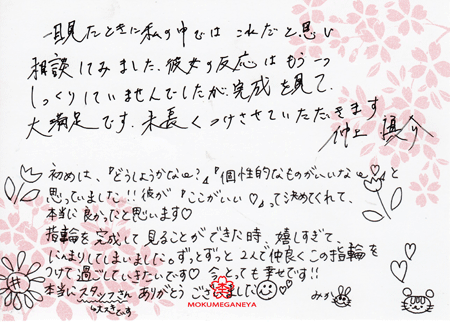 一目見たときに私の中では これだと思い
相談してみました。彼女の反応は もう一つ
しっくりしていませんでしたが、完成を見て、
大満足です。末長くつけさせていただきます
仲上 慎介
初めは、『どうしようかなぁ?』『個性的なものがいいなぁ』と
思っていました!!彼が『ここがいい♡』って決めてくれて、
本当に良かったと思います♡
指輪を完成して見ることができた時、嬉しすぎて、
にんまりしてしまいました。ずっとずっと2人で仲良くこの指輪を
つけて過ごしていきたいです♡ 今とっても幸せです!!
本当にスタッフさん ありがとう ございました
大スキです みか
MOKUMEGANEYA